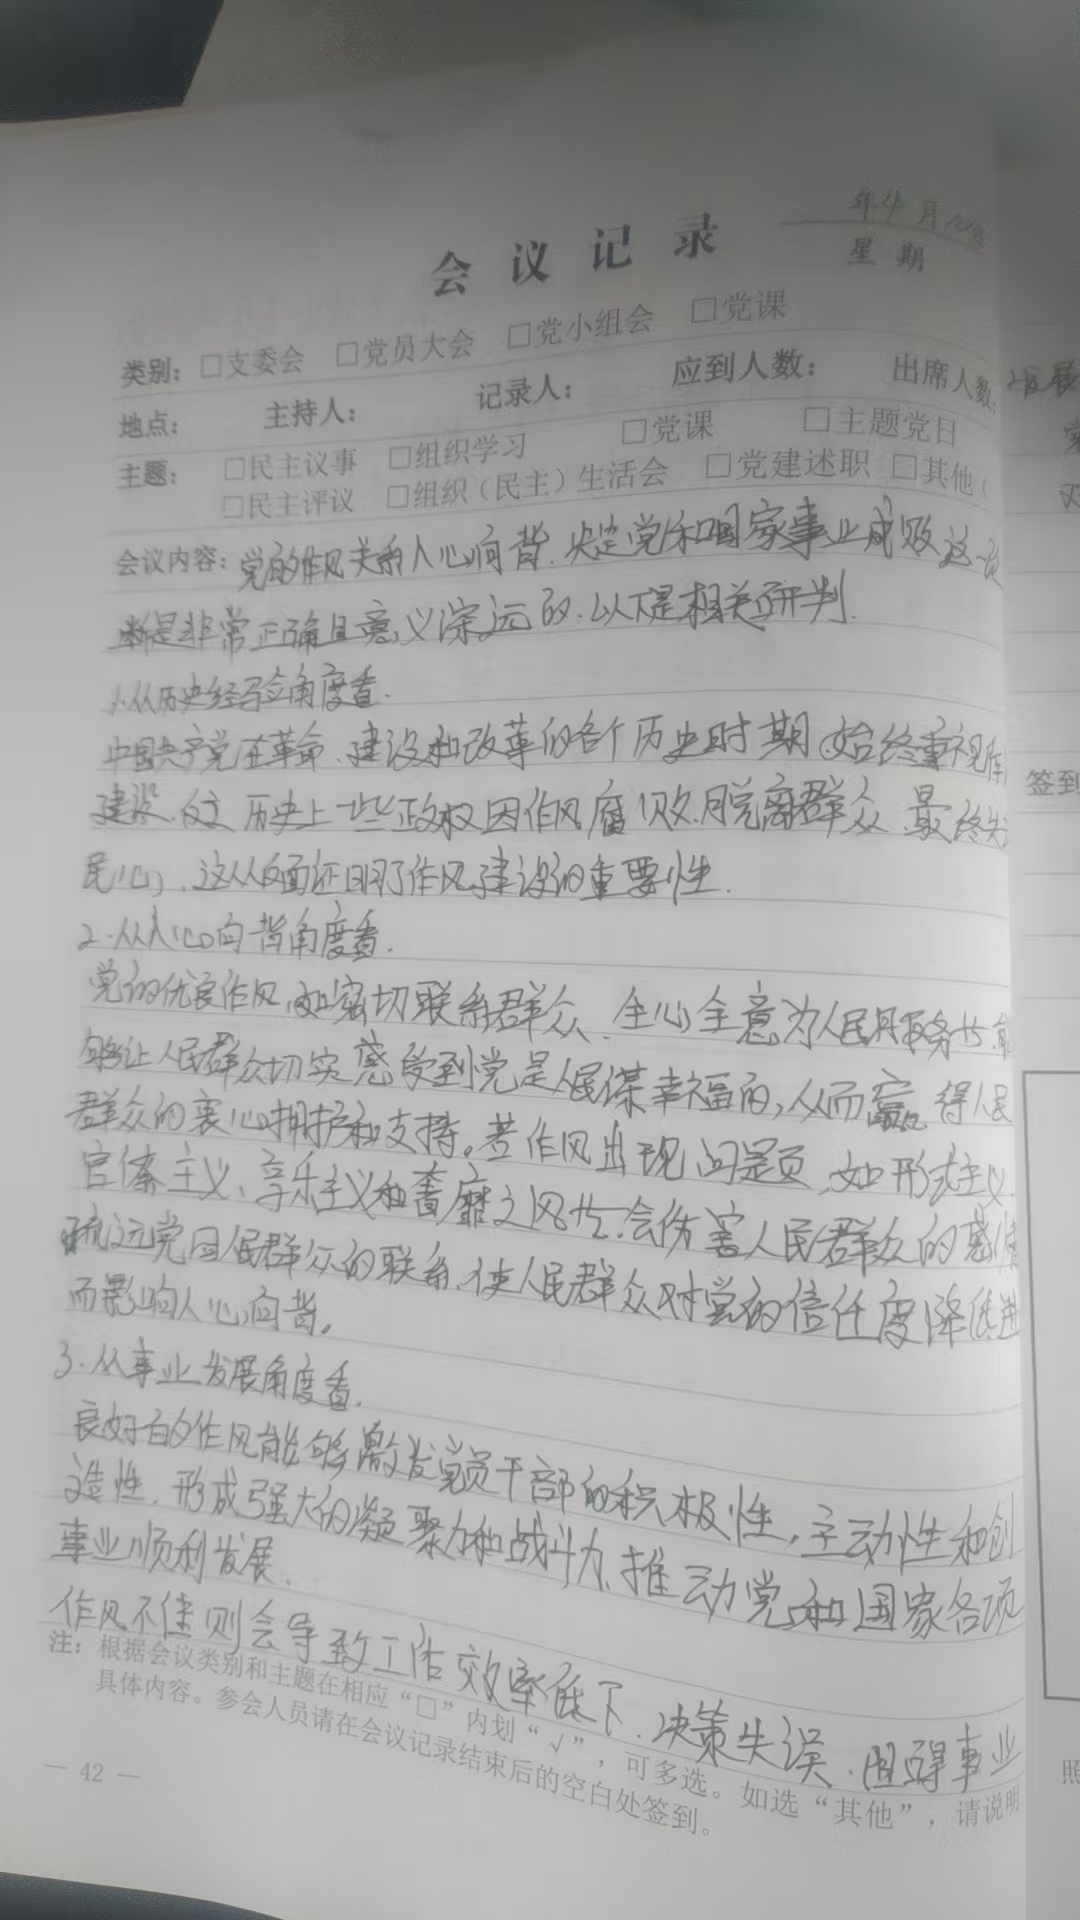 年4月10日
星 期
会 议 记 录
类别：□支委会 □党员大会 □党小组会 □党课
地点： 主持人： 记录人： 应到人数： 出席人数：
主题： □民主议事 □组织学习 □党课 □主题党日
□民主评议 □组织（民主）生活会 □党建述职 □其他（
会议内容：党的作风关系人心向背、决定党和国家事业成败 这一论
断是非常正确且意义深远的．以下是相关研判．
1.从历史经验角度看．
中国共产党在革命、建设和改革的各个历史时期 始终重视作
建设．历史上一些政权因作风腐败．脱离群众．最终失
民心，这从反面证明了作风建设的重要性．
2.从人心向背角度看．
党的优良作风，如密切联系群众、全心全意为人民服务 能
够让人民群众切实感受到党是人民谋幸福的，从而赢得人民
群众的衷心拥护和支持。若作风出现问题，如形式主义
官僚主义、享乐主义和奢靡之风 会伤害人民群众的感情
疏远党同人民群众的联系，使人民群众对党的信任度降低进
而影响人心向背。
3.从事业发展角度看．
良好的作风能够激发党员干部的积极性，主动性和创
造性，形成强大的凝聚力和战斗力、推动党和国家各项
事业顺利发展．
作风不佳则会导致工作效率低下．决策失误．阻碍事业
注：根据会议类别和主题在相应“□”内划“√”，可多选。如选“其他”，请说明
具体内容。参会人员请在会议记录结束后的空白处签到。
— 42 —
签到